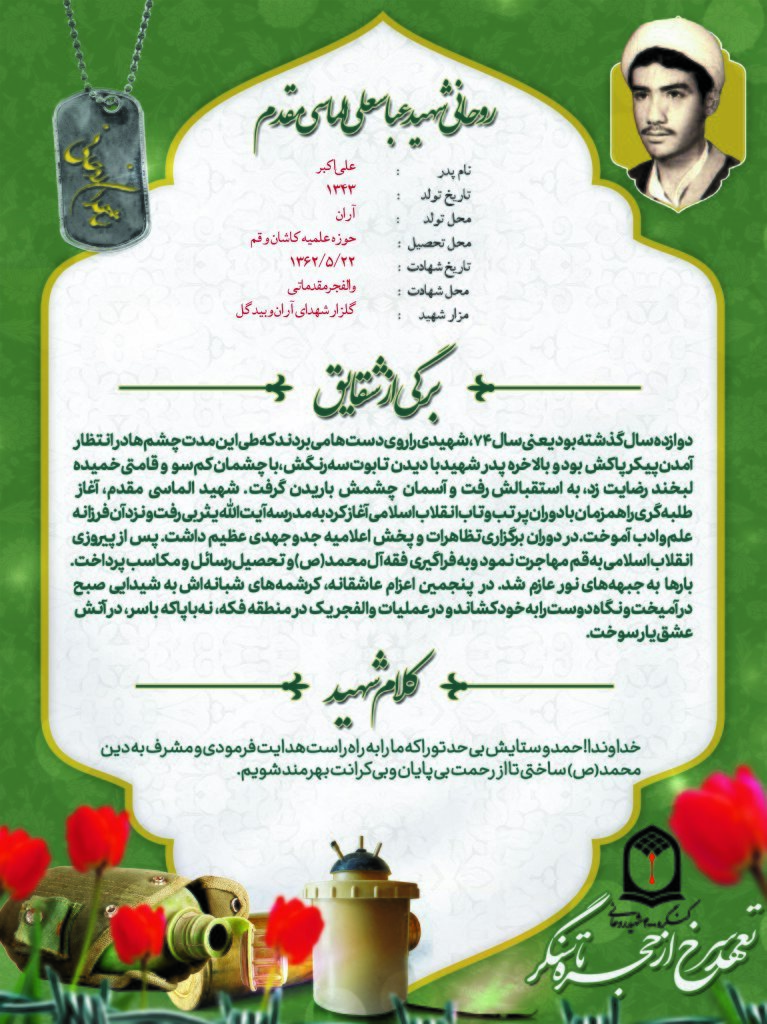 روحانی شهید عباسعلی الماسی مقدم
نام پدر : علی‌اکبر
تاریخ تولد : ۱۳۴۳
محل تولد : آران
محل تحصیل : حوزه علمیه کاشان و قم
تاریخ شهادت : ۱۳۶۲/۵/۲۲
محل شهادت : والفجر مقدماتی
مزار شهید : گلزار شهدای آران و بیدگل
برگی از شقایق
دوازده سال گذشته بود یعنی سال ۷۴، شهیدی را روی دست‌ها می بردند که طی این مدت چشم ها در انتظار
آمدن پیکر پاکش بود و بالاخره پدر شهید با دیدن تابوت سه رنگش، با چشمان کم سو و قامتی خمیده
لبخند رضایت زد، به استقبالش رفت و آسمان چشمش باریدن گرفت. شهید الماسی مقدم، آغاز
طلبه گری را همزمان با دوران پر تب و تاب انقلاب اسلامی آغاز کرد به مدرسه آیت الله یثربی رفت و نزد آن فرزانه
علم و ادب آموخت. در دوران برگزاری تظاهرات و پخش اعلامیه جد و جهدی عظیم داشت. پس از پیروزی
انقلاب اسلامی به قم مهاجرت نمود و به فراگیری فقه آل محمد(ص) و تحصیل رسائل و مکاسب پرداخت.
بارها به جبهه‌های نور عازم شد. در پنجمین اعزام عاشقانه، کرشمه‌های شبانه‌اش به شیدایی صبح
درآمیخت و نگاه دوست را به خود کشاند و در عملیات والفجر یک در منطقه فکه، نه با پا که با سر، در آتش
عشق یار سوخت.
کلام شهید
خداوندا! حمد و ستایش بی حد تو را که ما را به راه راست هدایت فرمودی و مشرف به دین
محمد(ص) ساختی تا از رحمت بی پایان و بی کرانت بهره مند شویم.
تعهد سرخ از حجره تا سنگر